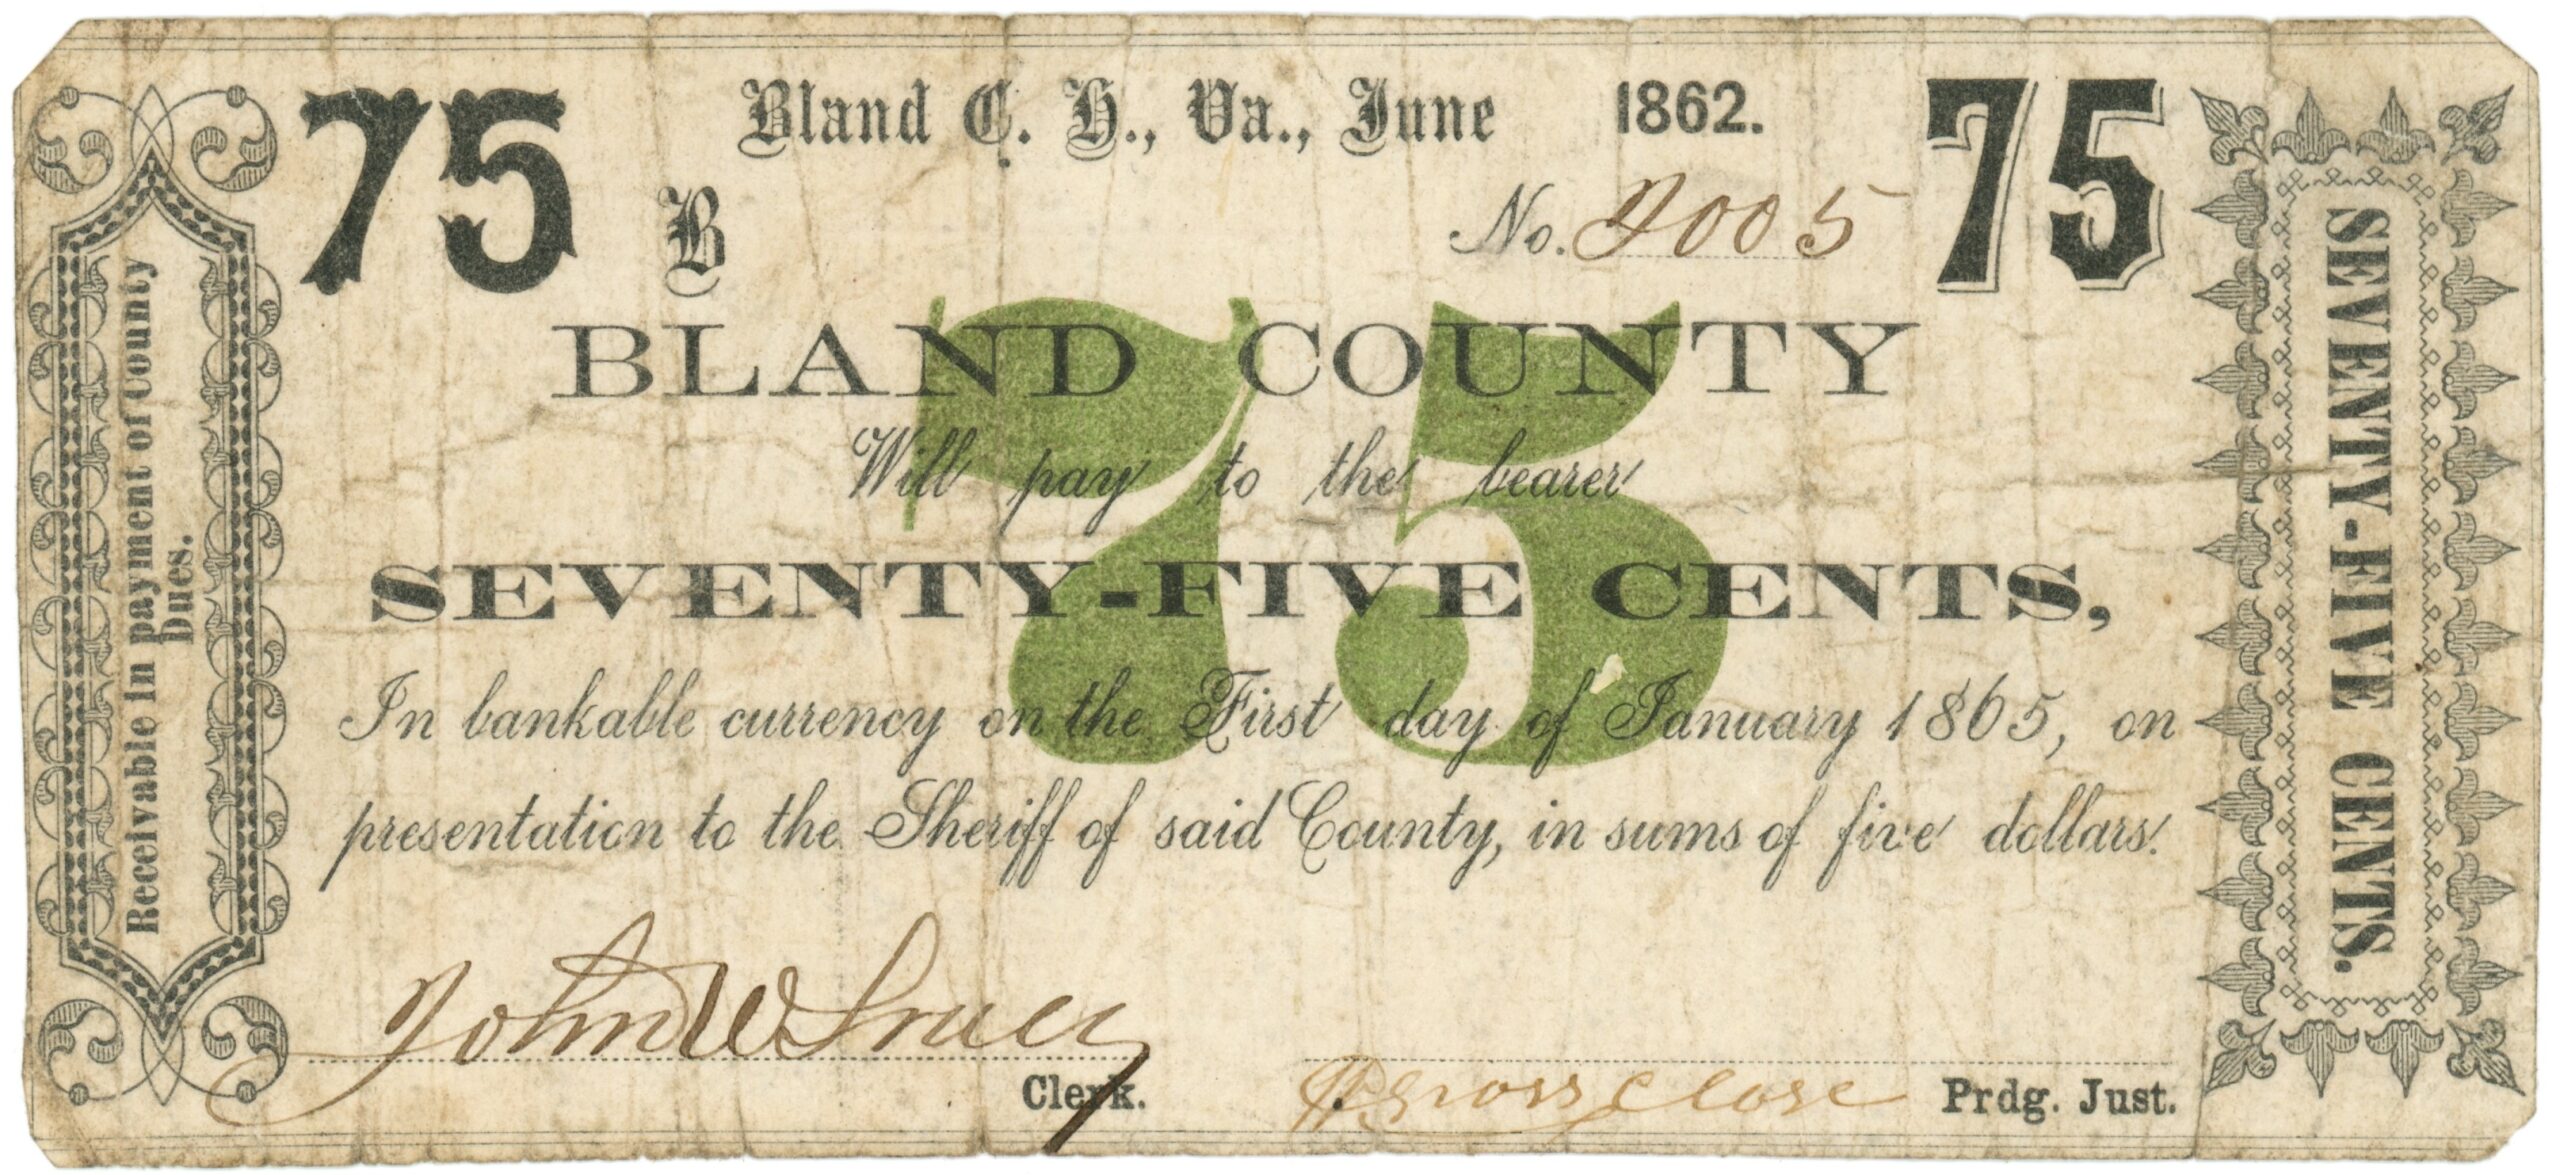 75 Bland C. H., Va., June 1862. 75
B No. 2005
75
BLAND COUNTY
Will pay to the bearer
SEVENTY-FIVE CENTS,
In bankable currency on the First day of January 1865, on
presentation to the Sheriff of said County, in sums of five dollars.
John W
Clerk.
Prdg. Just.
Receivable in payment of County
Dues.
SEVENTY-FIVE CENTS.